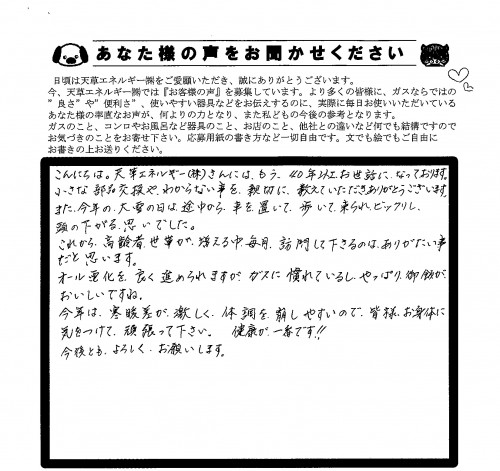 あなた様の声をお聞かせください
日頃は天草エネルギー㈱をご愛願いただき、誠にありがとうございます。
今、天草エネルギー㈱では『お客様の声』を募集しています。より多くの皆様に、ガスならではの
"良さ"や"便利さ"、使いやすい器具などをお伝えするのに、実際に毎日お使いいただいている
あなた様の率直なお声が、何よりの力となり、また私どもの今後の参考となります。
ガスのこと、コンロやお風呂など器具のこと、お店のこと、他社との違いなど何でも結構ですので
お気づきのことをお寄せ下さい。応募用紙の書き方など一切自由です。文でも絵でもご自由に
お書きの上お送りください。
こんにちは。天草エネルギー(株)さんには、もう、40年以上お世話に、なっております。
小さな部品交換や、わからない事を、親切に、教えていただきありがとうございます。
また、今年の、大雪の日は、途中から、車を置いて、歩いて、来られ、ビックリし、
頭の下がる、思いでした。
これから、高齢者、世帯が、増える中、毎月、訪問して下さるのは、ありがたい事
だと思います。
オール電化を、良く進められますが、ガスに慣れているし、やっぱり、御飯が、
おいしいですね。
今年は、寒暖差が、激しく、体調を、崩しやすいので、皆様、お身体に
気をつけて、頑張って下さい。 健康が、一番です!!
今後とも、よろしく、お願いします。